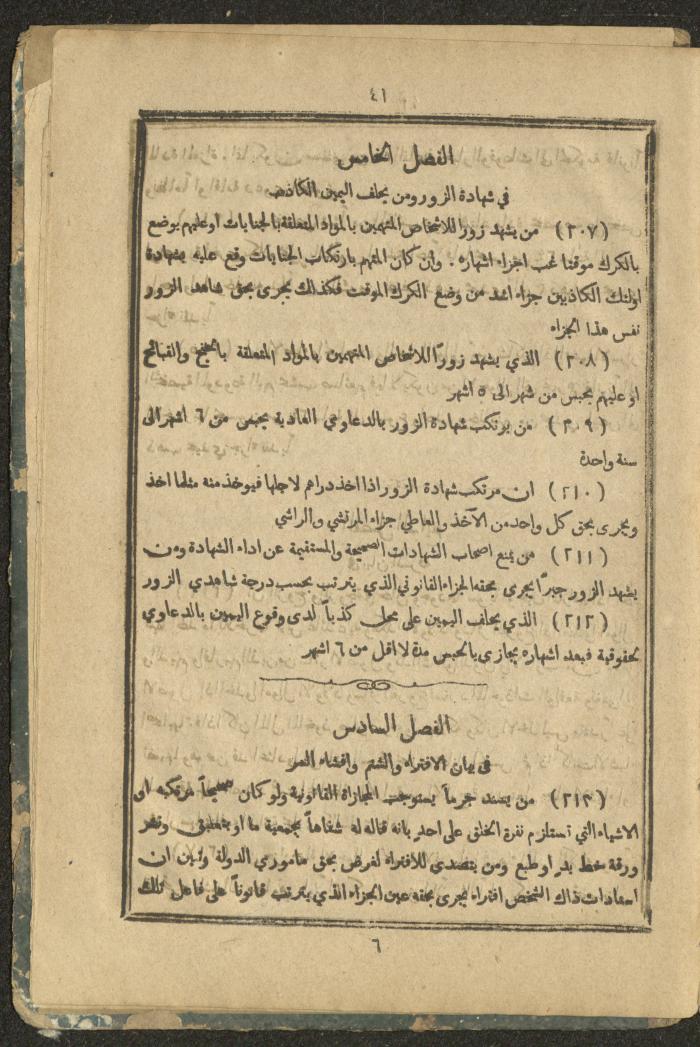 ٤١
الفصل الخامس
في شهادة الزور ومن يحلف اليمين الكاذب
(٢٠٧) من يشهد زورا للاشخاص المتهمين بالمواد المتعلقة بالجنايات او عليهم بوضع
بالكرك موقتا غب اجراء اشهاره . وان كان المتهم بارتكاب الجنايات وقع عليه بشهادة
اولئك الكاذبين جزاء اشد من وضع الكرك الموقت فكذلك يجرى بحق شاهد الزور
نفس هذا الجزاء
(٢٠٨) الذي يشهد زوراً للاشخاص المتهمين بالمواد المتعلقة بالجنح والقبائح
او عليهم يحبس من شهر الى ٥ اشهر
(٢٠٩) من يرتكب شهادة الزور بالدعاوي العادية يحبس من ٦ اشهر الى
سنة واحدة
(٢١٠) ان مرتكب شهادة الزور اذا اخذ دراهم لاجلها فيوخذ منه مثلما اخذ
ويجرى بحق كل واحد من الآخذ والعاطي جزاء المرتشي والراشي
(٢١١) من يمنع اصحاب الشهادات الصحيحة والمستقيمة عن اداء الشهادة ومن
يشهد الزور جبراً يجرى بحقه الجزاء القانوني الذي يترتب بحسب درجة شاهدي الزور
(٢١٢) الذي يحلف اليمين على محل كذباً لدى وقوع اليمين بالدعاوي
لحقوقية فبعد اشهاره يجازى بالحبس مدة لا اقل من ٦ اشهر
الفصل السادس
في بيان الافتراء والشتم وافشاء السر
(٢١٣) من يسند جرماً يستوجب المجازاة القانونية ولو كان صحيحاً مرتكبه او
الاشياء التي تستلزم نفرة الخلق على احد بانه قاله له شفاهاً بجمعية ما او بتعليق ونشر
ورقة خط يد او طبع ومن يتصدي للافتراء لغرض بحق ماموري الدولة وتبين ان
اسنادات ذاك الشخص افتراء يجرى بحقه عين الجزاء الذي يترتب قانوناً على فاعل تلك
٦